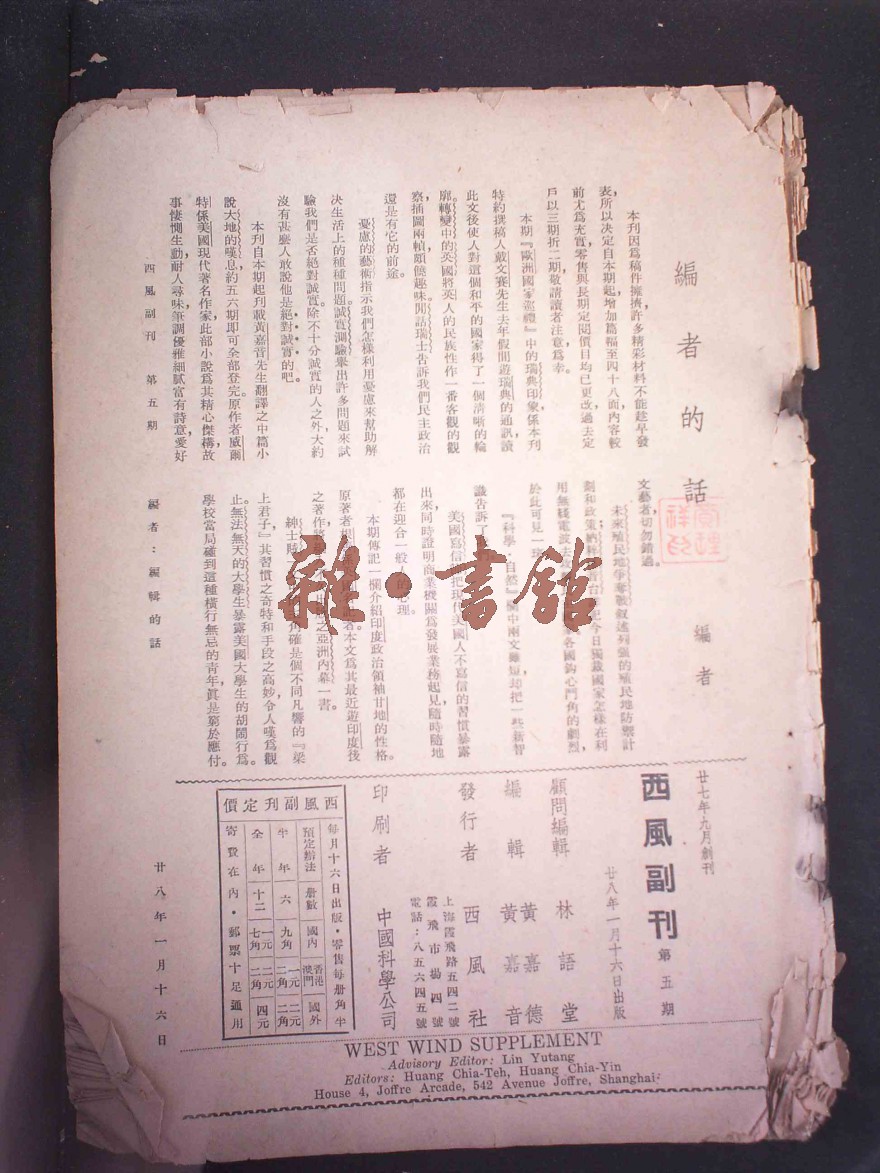 編者的話
編者
本刊因爲稿件擁擠許多精彩材料不能趁早發
表所以決定自本期起增加篇幅至四十八面內容較
前尤爲充實零售與長期定閱價目均已更改過去定
戶以三期折二期敬請讀者注意爲幸。
本期『歐洲國家巡禮』中的瑞典印象係本刊
特約撰稿人戴文賽先生去年假期遊瑞典的通訊讀
此文後使人對這個和平的國家得了一個清晰的輪
廓。轉變中的英國將英人的民族性作一番客觀的觀
察插圖兩幀頗饒趣味。閒話瑞士告訴我們民主政治
還是有它的前途。
憂慮的藝術指示我們怎樣利用憂慮來幫助解
決生活上的種種問題。誠實測驗舉出許多問題來試
驗我們是否絕對誠實。除不十分誠實的人之外大約
沒有甚麼人敢說他是絕對誠實的吧。
本刊自本期起刊載黃嘉音先生翻譯之中篇小
說大地的嘆息，約五六期即可全部登完。原作者威爾
特係美國現代著名作家，此部小說爲其精心傑構，故
事悽惻生動，耐人尋味筆調優雅細膩富有詩意愛好
文藝者切勿錯過。
未來殖民地爭奪戰叙述列強的殖民地防禦計
劃和政策
用無綫電波去 各國鈎心鬥角的劇烈，
於此可見一
『科學·自然』欄中兩文雖短却把一些新智
識告訴了
美國寫信 把現代美國人不寫信的習慣暴露
出來同時證明商業機關爲發展業務起見隨時隨地
都在迎合一般 心理。
本期傳記一欄介紹印度政治領袖甘地的性格。
原著者 本文爲其最近遊印度後
之著作 之亞洲內幕一書。
紳士賊 確是個不同凡響的『梁
上君子』其習慣之奇特和手段之高妙令人嘆爲觀
止。無法無天的大學生暴露美國大學生的胡鬧行爲。
學校當局確到這種橫行無忌的青年，眞是窮於應付。
西風副刊 第五期
編者：編輯的話
廿八年一月十六日
雜·書館
廿七年九月創刊
西風副刊 第五期
廿八年一月十六日出版
顧問編輯 林語堂
編輯 黃嘉德
黃嘉音
發行者 西風社
上海霞飛路五四二號
霞飛市場四號
電話：八五六四五號
印刷者 中國科學公司
西風副刊定價
每月十六日出版·零售每册角半
預定辦法 册數 國內 香港澳門 國外
半年 六 九角 一元二角 二元二角
全年 十二 一元七角 二元二角 四元
寄費在內·郵票十足通用
WEST WIND SUPPLEMENT
Advisory Editor: Lin Yutang
Editors: Huang Chia-Teh, Huang Chia-Yin
House 4, Joffre Arcade, 542 Avenue Joffre, Shanghai